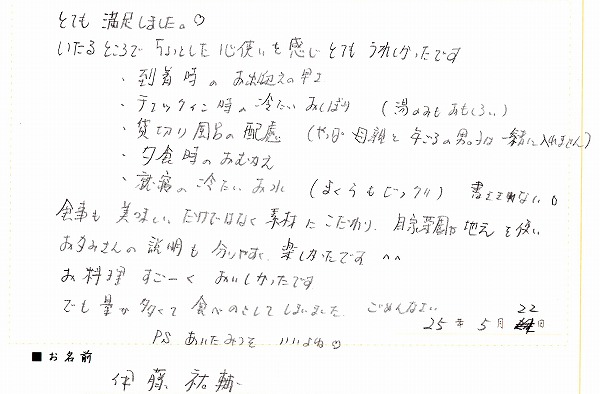 とても 満足しました。♡
いたるところで ちょっとした心使いを感じ とても うれしかったです
・到着時の お出迎えの
・チェックイン時の冷たいおしぼり (湯のみもおもしろい)
・貸切り風呂の配慮 (やっぱり母親と年ごろの男の子は一緒に入れません)
・夕食時のおむかえ
・就寝の冷たいお水 (まくらもビックリ) 書ききれない。
食事も 美味しいだけではなく素材にこだわり、自家菜園や地元を使い
お客さんの説明も 分りやすく、楽しかったです ^^
お料理 すごーく おいしかったです
でも 量が多くて 食べのこしてしまいました。 ごめんなさい
25年 5月 22日
PS あいたみつを いいよね☺
■お名前
伊藤 祐輔